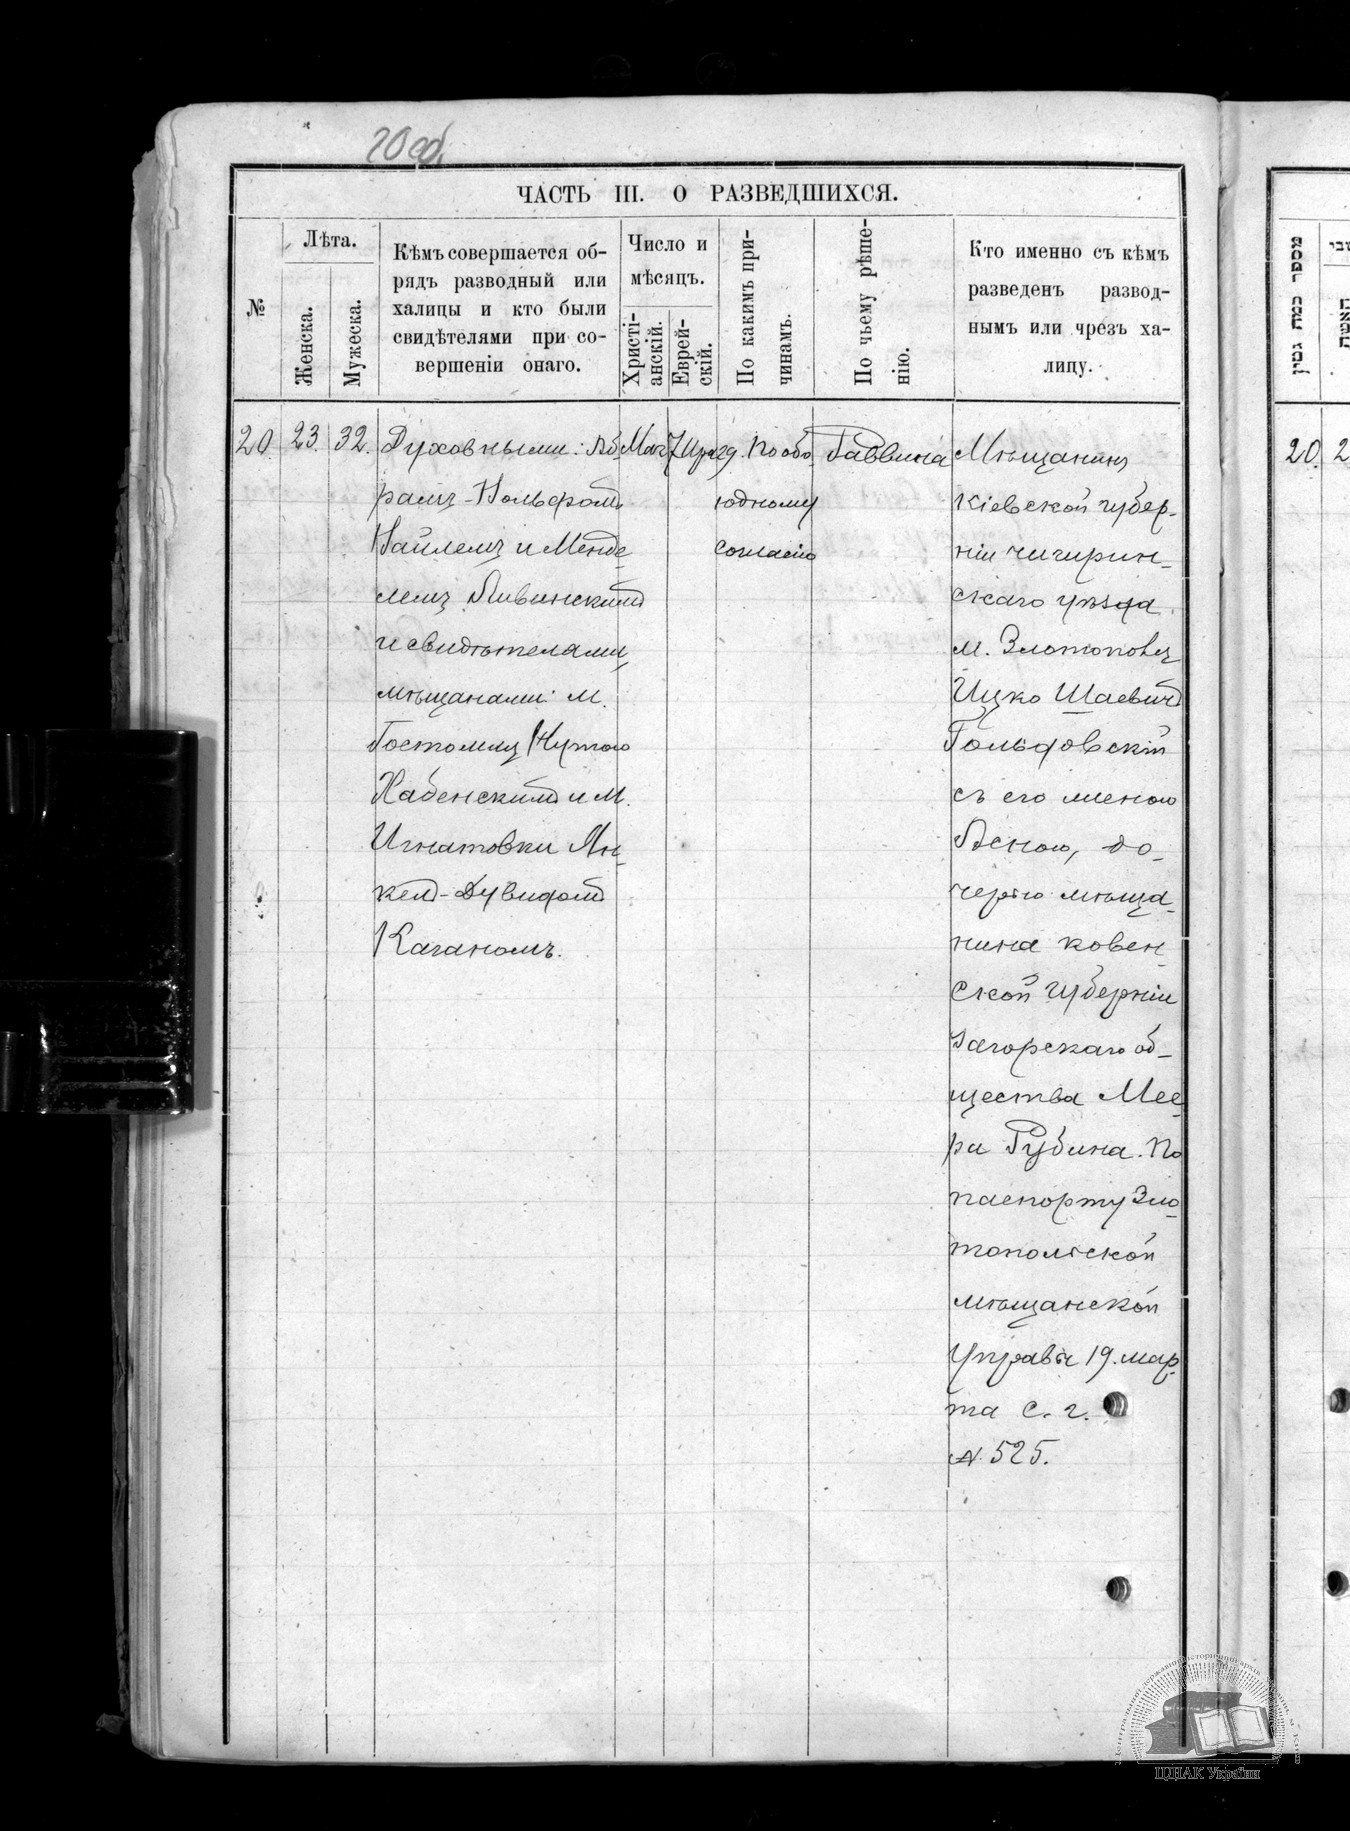 20 об.
ЧАСТЬ III. О РАЗВЕДШИХСЯ.
№
Лѣта.
Женска.
Мужеска.
Кѣмъ совершается об-
рядъ разводный или
халицы и кто были
свидѣтелями при со-
вершеніи онаго.
Число и
мѣсяцъ.
Христі-
анскій.
Еврей-
скій.
По какимъ при-
чинамъ.
По чьему рѣше-
нію.
Кто именно съ кѣмъ
разведенъ развод-
нымъ или чрезъ ха-
лицу.
20. 23. 32.
Духовными: Аб-
рамъ-Вольфомъ
и Менде-
лемъ
и свидѣтелями,
мѣщанами: м.
Гостомля Нутою
Хабенскимъ и М.
Игнатовки Ян-
кел-Дувидомъ
Каганомъ.
29. По обо-
юдному
согласію
Раввина
Мѣщанинъ
Кіевской губер-
ніи Чигирин-
скаго уѣзда
м. Златополя
Ицко Шаевичъ
Гольдовскій
съ его женою
Асною, до-
черью мѣща-
нина Ковен-
ской губерніи
Загорскаго об-
щества Мее-
ра Рубина. По
паспорту Зла-
топольской
мѣщанской
Управы 19. мар-
та с. г.
№ 525.
מספר כמות גטין
האשה
20. 2
ЦДІАК України